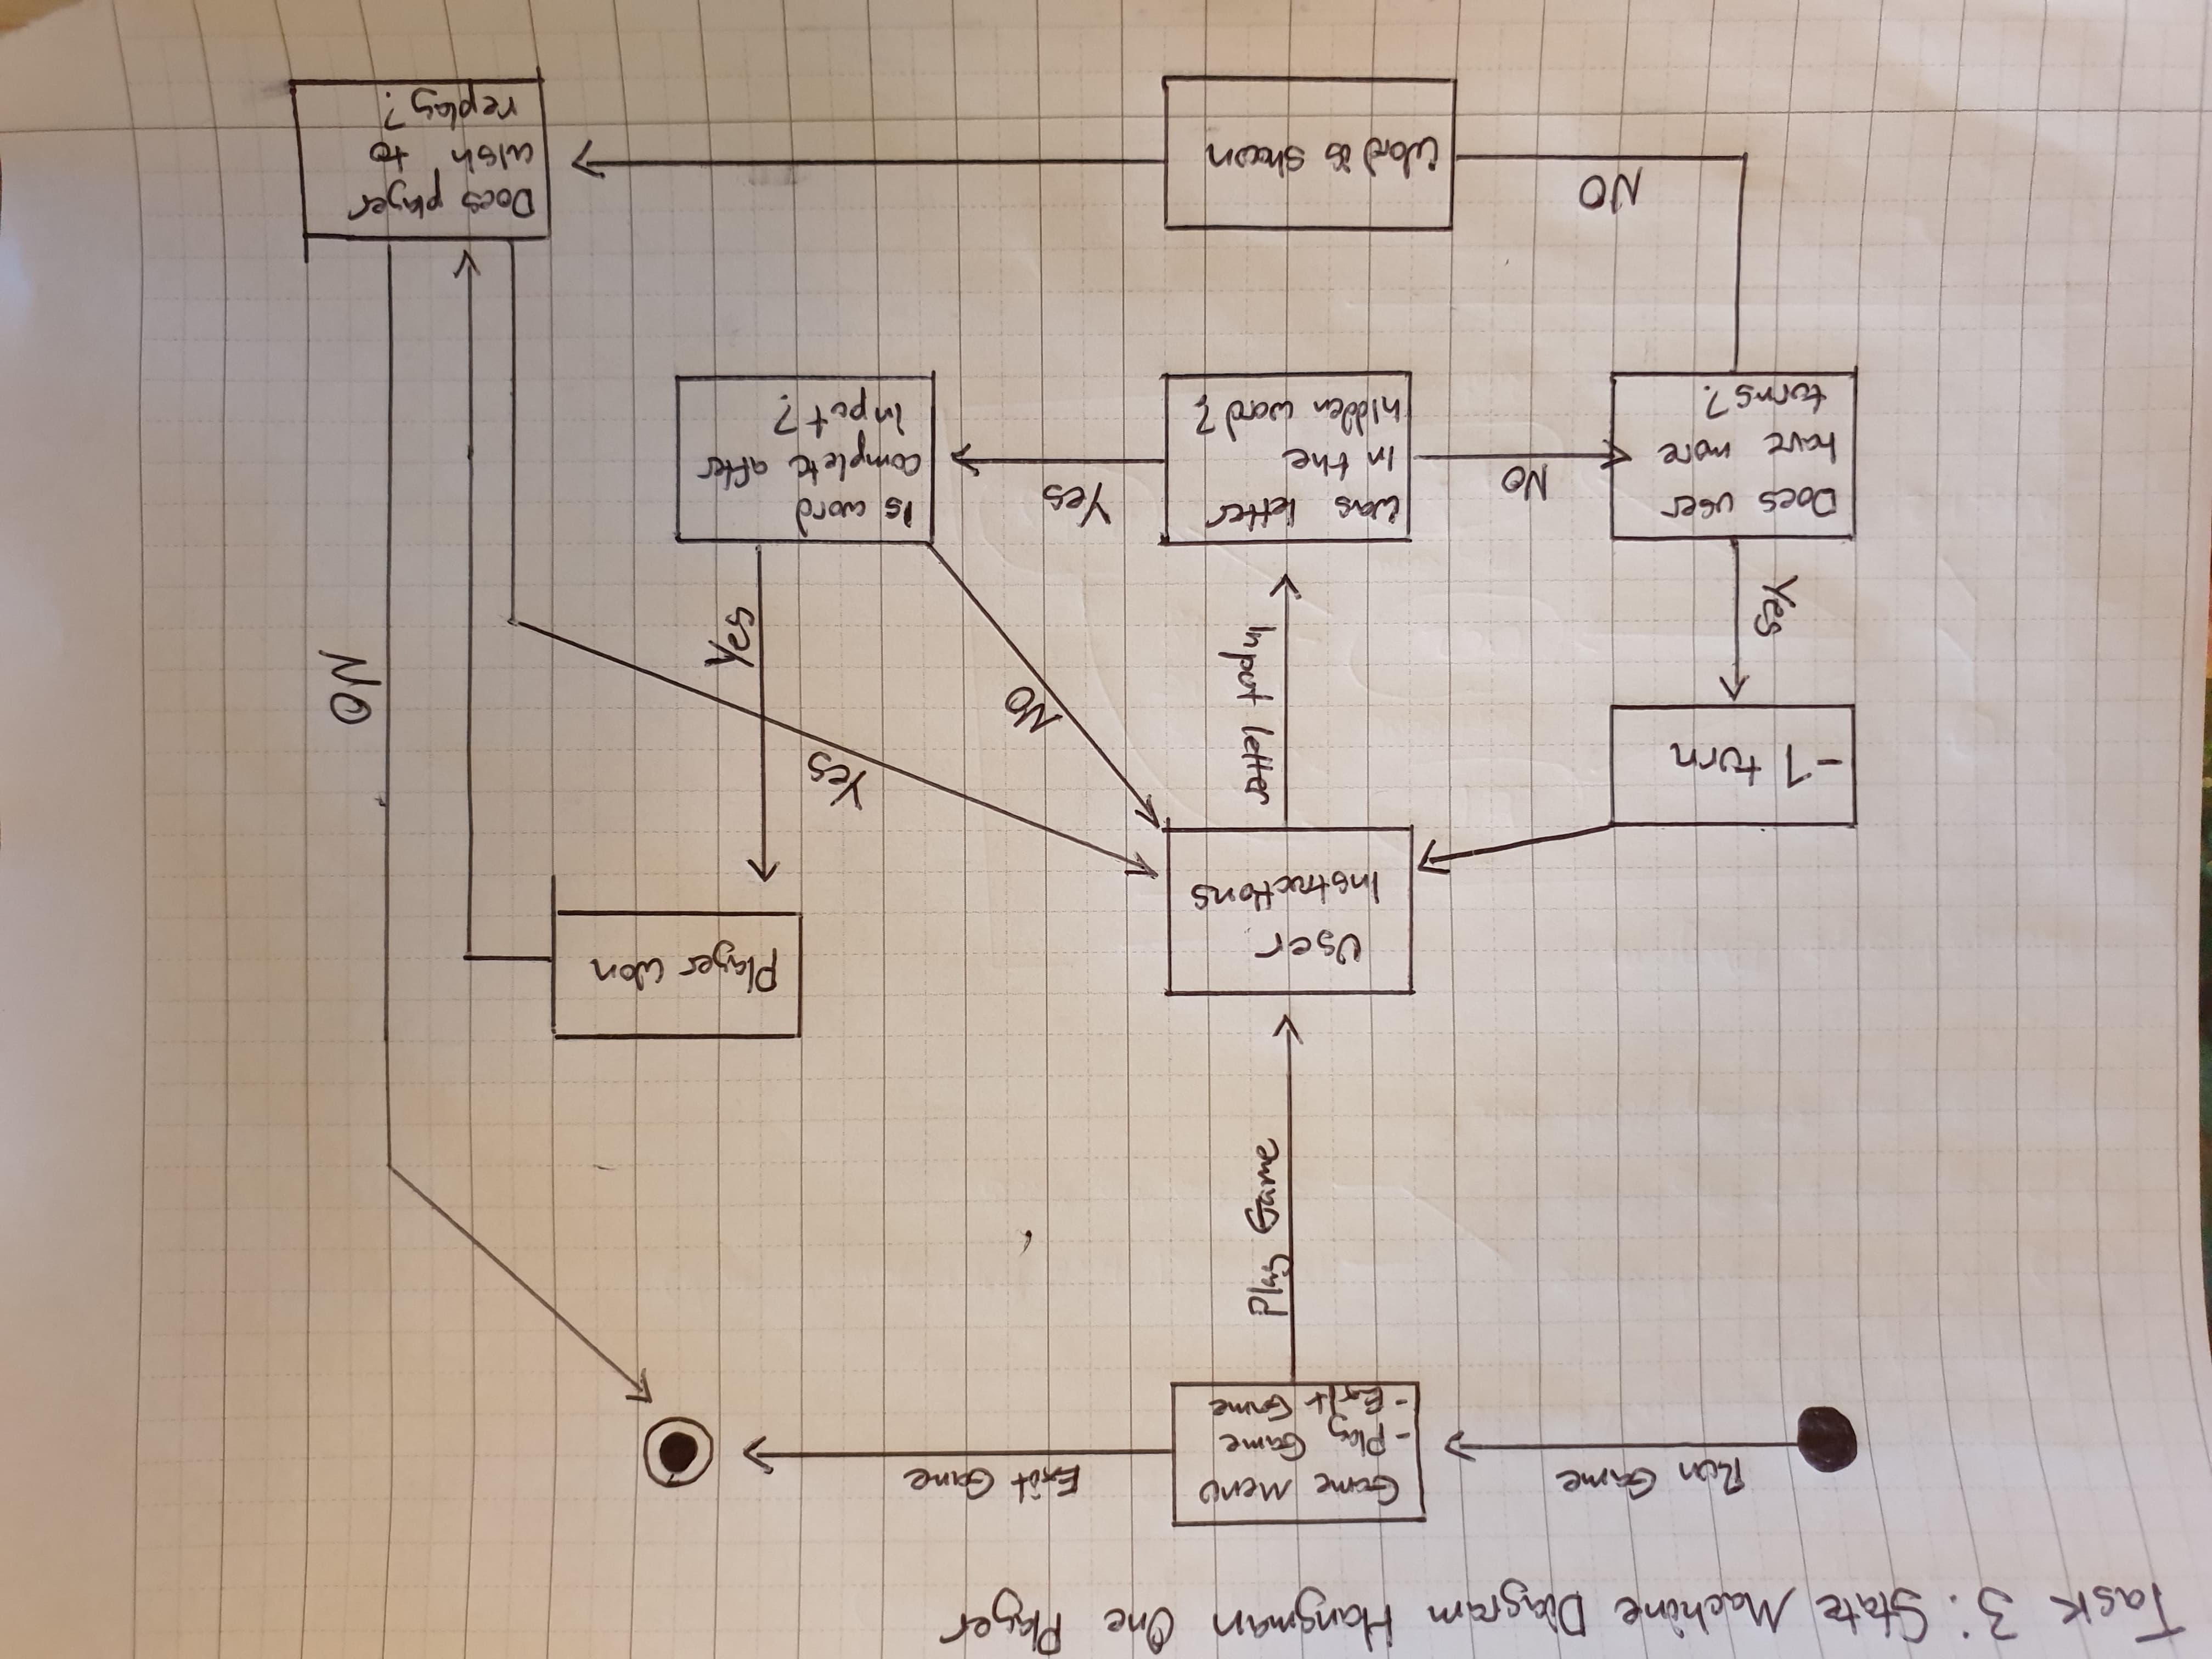 Task 3: State Machine Diagram Hangman One Player
Run Game
Game Menu
- Play Game
- Exit Game
Exit Game
Play Game
User
Instructions
Player Won
-1 turn
Input letter
Yes
NO
Yes
NO
Yes
Does user
have more
turns?
NO
Was letter
in the
hidden word?
Yes
Is word
complete after
input?
NO
Word is shown
Does player
wish to
replay?